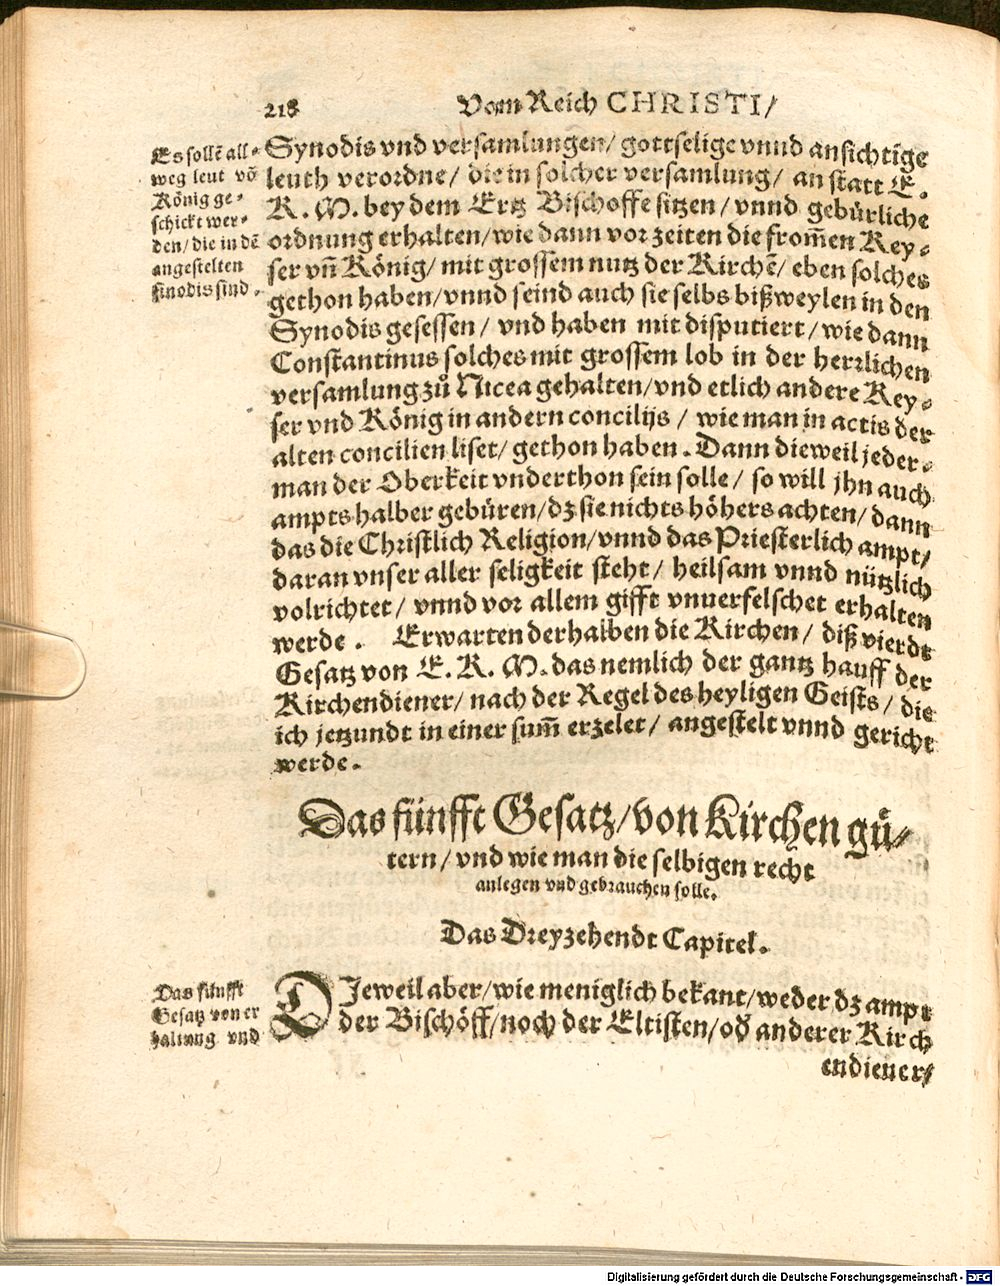 218 Vom Reich CHRISTI/
Es sollē all⸗
weg leut võ
König ge⸗
schickt wer⸗
den/ die in dē
angestelten
sinodis sind.
Synodis vnd versamlungen/ gottselige vnnd ansichtige
leuth verordne/ die in solcher versamlung/ an statt E.
K. M. bey dem Ertz Bischoffe sitzen/ vnnd gebürliche
ordnung erhalten/ wie dann vor zeiten die from̃en Key⸗
ser vn̄ König/ mit grossem nutz der Kirchē/ eben solches
gethon haben/ vnnd seind auch sie selbs bißweylen in den
Synodis gesessen/ vnd haben mit disputiert/ wie dann
Constantinus solches mit grossem lob in der herrlichen
versamlung zů Nicea gehalten/ vnd etlich andere Key⸗
ser vnd König in andern concilijs/ wie man in actis der
alten concilien liset/ gethon haben. Dann dieweil jeder⸗
man der Oberkeit vnderthon sein solle/ so will jhn auch
ampts halber gebüren/ dz sie nichts höhers achten/ dann
das die Christlich Religion/ vnnd das Priesterlich ampt/
daran vnser aller seligkeit steht/ heilsam vnnd nützlich
volrichtet/ vnnd vor allem gifft vnuerfelschet erhalten
werde. Erwarten derhalben die Kirchen/ diß vierdt
Gesatz von E. K. M. das nemlich der gantz hauff der
Kirchendiener/ nach der Regel des heyligen Geists/ die
ich jetzundt in einer sum̃ erzelet/ angestelt vnnd gericht
werde.
Das fünfft Gesatz/ von Kirchen gů⸗
tern/ vnd wie man die selbigen recht
anlegen vnd gebrauchen solle.
Das Dreyzehendt Capitel.
Das fünfft
Gesatz von er
haltung vnd
DIeweil aber/ wie meniglich bekant/ weder dz ampt
der Bischöff/ noch der Eltisten/ od̕ anderer Kirch
endiener/
Digitalisierung gefördert durch die Deutsche Forschungsgemeinschaft - DFG